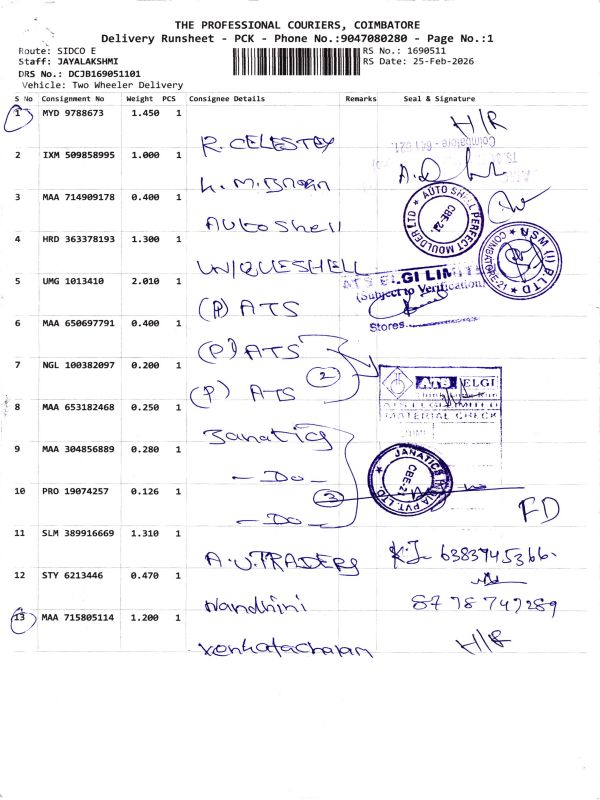 THE PROFESSIONAL COURIERS, COIMBATORE
Delivery Runsheet - PCK - Phone No.:9047080280 - Page No.:1
Route: SIDCO E
RS No.: 1690511
Staff: JAYALAKSHMI
RS Date: 25-Feb-2026
DRS No.: DCJB169051101
Vehicle: Two Wheeler Delivery
S No Consignment No Weight PCS Consignee Details Remarks Seal & Signature
1 MYD 9788673 1.450 1 H/R
R. CELESTEY
Coimbatore - 641 021.
2 IXM 509858995 1.000 1
3 MAA 714909178 0.400 1
AUTO SHELL PERFECT MOULDER LTD
CBE-21.
Autoshell
4 HRD 363378193 1.300 1
NSM (I) P.LTD
COIMBATORE-21
UNIQUESHELL
ATS ELGI LIMITED
5 UMG 1013410 2.010 1
(Subject to Verification)
(P) ATS
Stores
6 MAA 650697791 0.400 1
(P) ATS
7 NGL 100382097 0.200 1
2
ATS ELGI
(P) ATS
ATS ELGI LIMITED
8 MAA 653182468 0.250 1
MATERIAL CHECK
Janatics
9 MAA 304856889 0.280 1
JANATICS INDIA PVT. LTD.
CBE-21
- Do -
10 PRO 19074257 0.126 1
3
- Do -
FD
11 SLM 389916669 1.310 1
A.U.TRADERS
6383745366.
12 STY 6213446 0.470 1
Nandhini
8778747289
13 MAA 715805114 1.200 1
H/R
Venkatachalam